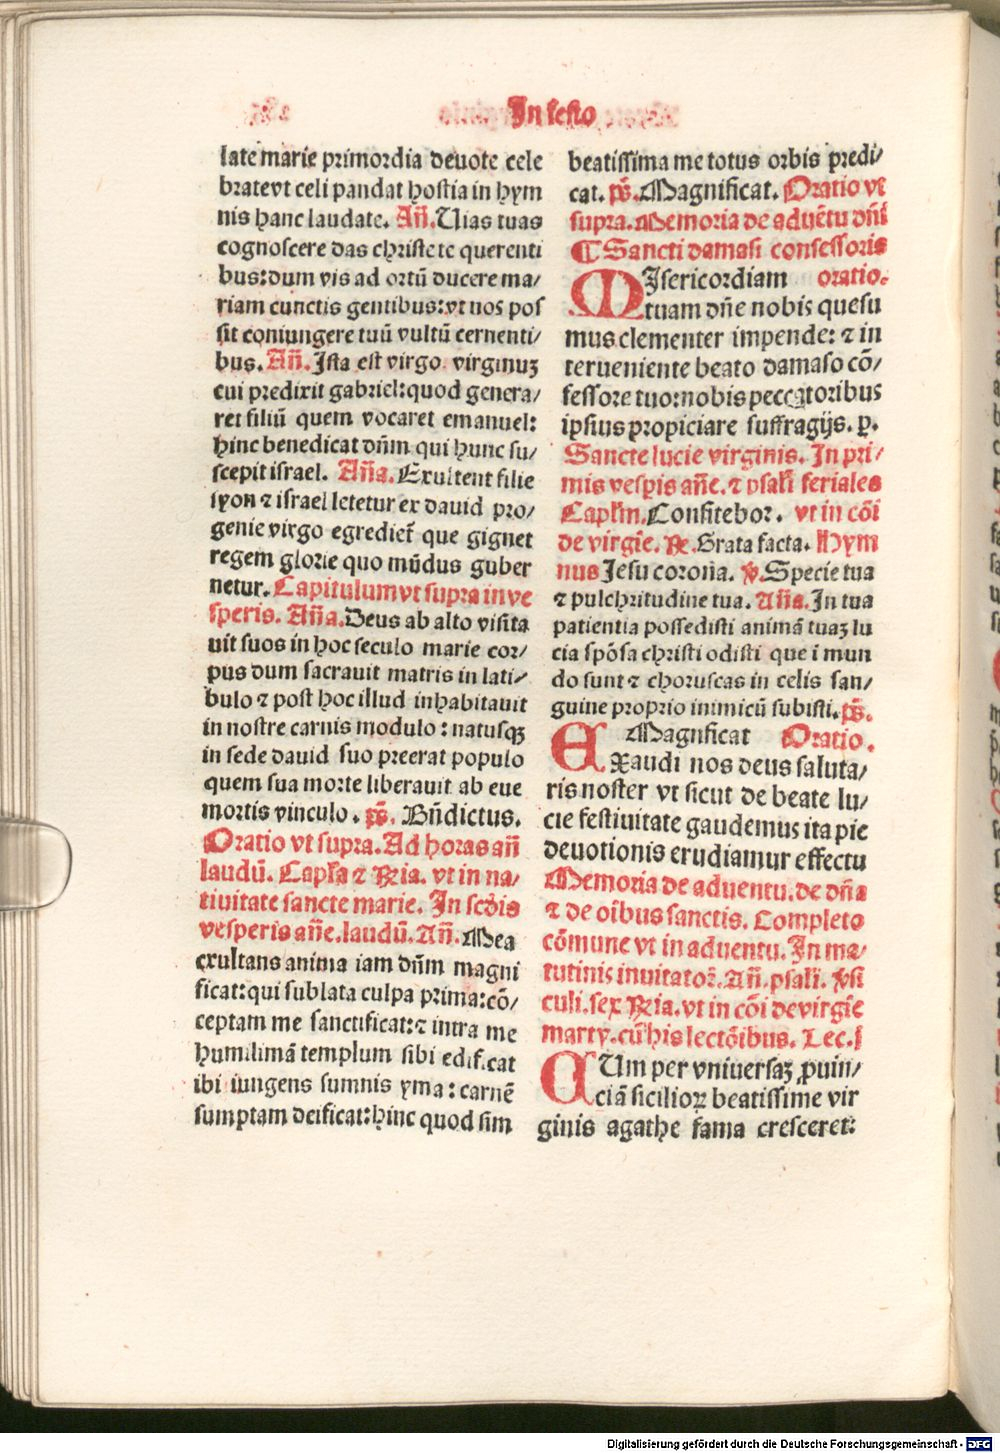 In festo
late marie primordia deuote cele
bratevt celi pandat hostia in hym
nis hanc laudate. Añ. Uias tuas
cognoscere das christe te querenti
bus: dum vis ad ortū ducere ma/
riam cunctis gentibus: vt nos pos
sit coniungere tuū vultū cernenti/
bus. Añ. Ista est virgo virginuꝫ
cui predixit gabriel: quod genera/
ret filiū quem vocaret emanuel:
hinc benedicat dñm qui hunc su/
scepit israel. Aña. Exultent filie
syon ⁊ israel letetur ex dauid pro/
genie virgo egrediet᷑ que gignet
regem glorie quo mūdus guber
netur. Capitulum vt supra in ve
speris. Aña. Deus ab alto visita
uit suos in hoc seculo marie cor/
pus dum sacrauit matris in lati/
bulo ⁊ post hoc illud inhabitauit
in nostre carnis modulo: natusqꝫ
in sede dauid suo preerat populo
quem sua morte liberauit ab eue
mortis vinculo. ps̄. Bñdictus.
Oratio vt supra. Ad horas añ
laudū. Capľa ⁊ ꝶia. vt in na/
tiuitate sancte marie. In scd̄is
vesperis añe. laudū. Añ. Mea
exultans anima iam dñm magni
ficat: qui sublata culpa prima: cō/
ceptam me sanctificat: ⁊ intra me
humilimā templum sibi edificat
ibi iungens summis yma: carnē
sumptam deificat: hinc quod sim
beatissima me totus orbis predi/
cat. ps̄. Magnificat. Oratio vt
supra. Memoria de aduētu dñi
¶ Sancti damasi confessoris
MIsericordiam oratio.
tuam dñe nobis quesu
mus clementer impende: ⁊ in
terueniente beato damaso cō/
fessore tuo: nobis peccatoribus
ipsius propiciare suffragijs. ꝑ.
Sancte lucie virginis. In pri/
mis vesꝑis añe. ⁊ psalī feriales
Capľm. Confitebor. vt in cōi
de virgīe. ꝶ. Grata facta. Hym
nus Jesu corona. ℣. Specie tua
⁊ pulchritudine tua. Aña. In tua
patientia possedisti animā tuaꝫ lu
cia spōsa christi odisti que ī mun
do sunt ⁊ choruscas in celis san/
guine proprio inimicū subisti. ps̄.
Magnificat Oratio.
EXaudi nos deus saluta/
ris noster vt sicut de beate lu/
cie festiuitate gaudemus ita pie
deuotionis erudiamur effectu
Memoria de aduentu. de dña
⁊ de oībus sanctis. Completo
cōmune vt in aduentu. In ma/
tutinis inuitatoꝝ. Añ. psalī. ℣si
culi. sex ꝶia. vt in cōi de virgīe
marty. cū his lectōibus. Lec. j
CUm per vniuersaꝫ ꝓuin/
ciā sicilioꝝ beatissime vir
ginis agathe fama cresceret:
Digitalisierung gefördert durch die Deutsche Forschungsgemeinschaft - DFG